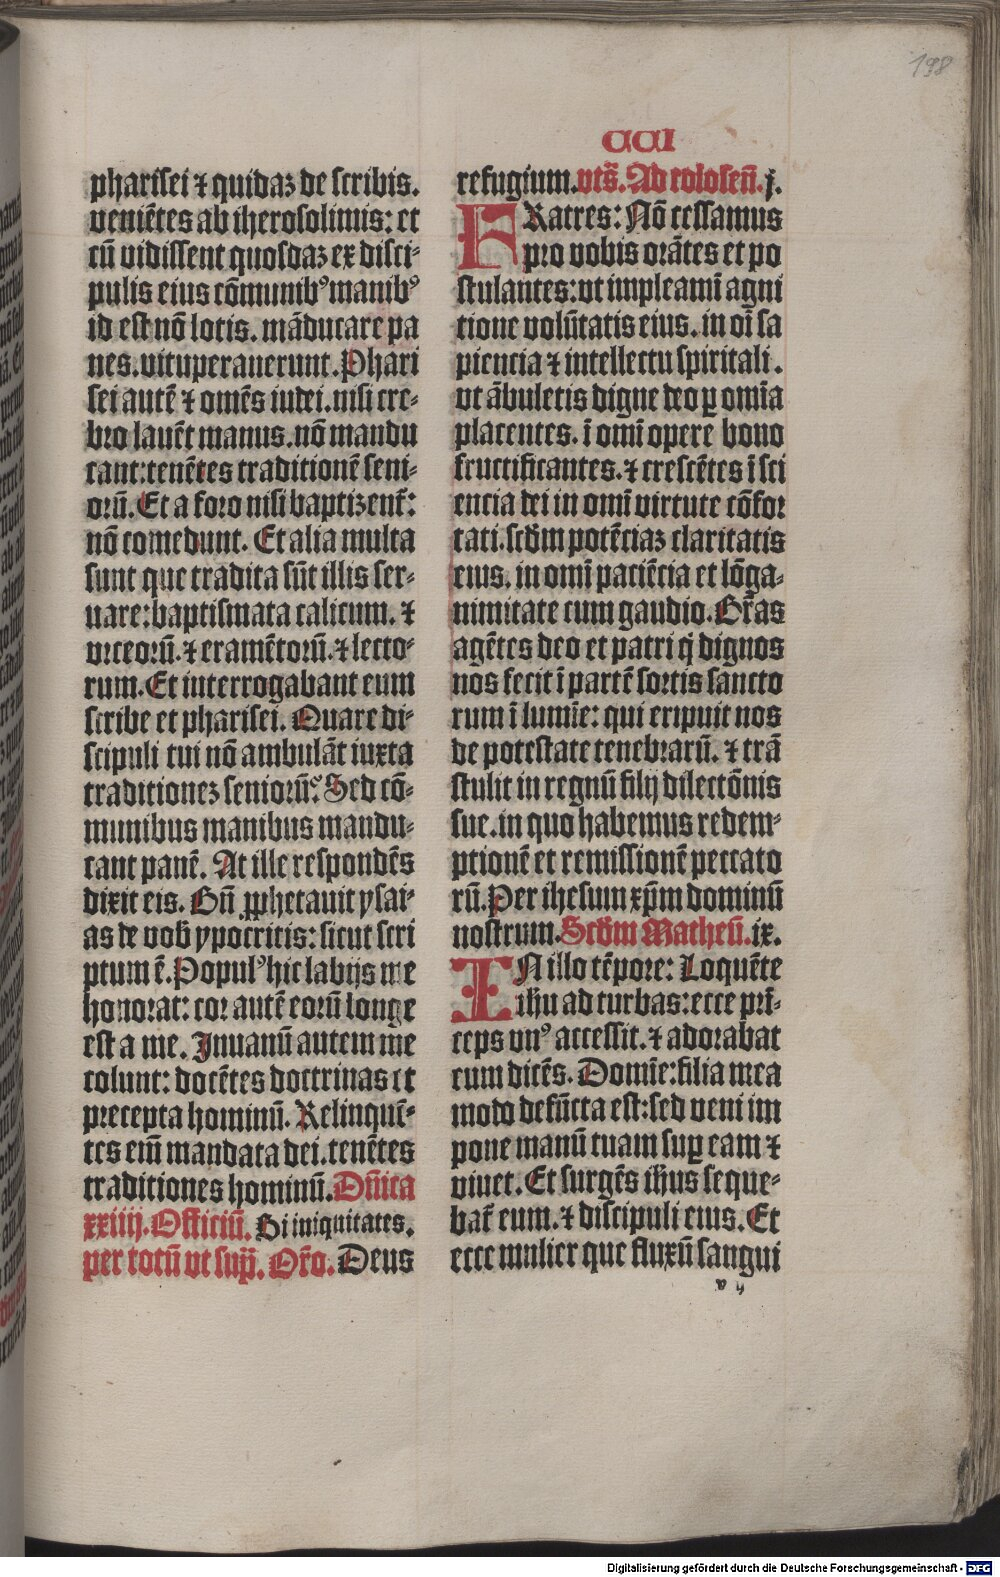 198
CCI
pharisei ⁊ quidaꝫ de scribis.
veniētes ab iherosolimis: et
cū vidissent quosdaꝫ ex disci-
pulis eius cōmunibꝰ manibꝰ
id est nō lotis. māducare pa
nes. vituperauerunt. Phari
sei autē ⁊ omēs iudei. nisi cre-
bro lauēt manus. nō mandu
cant: tenētes traditionē seni-
orū. Et a foro nisi baptizent᷑:
nō comedunt. Et alia multa
sunt que tradita sūt illis ser-
uare: baptismata calicum. ⁊
vrceorū. ⁊ eramētorū. ⁊ lecto-
rum. Et interrogabant eum
scribe et pharisei. Quare di-
scipuli tui nō ambulāt iuxta
traditioneꝫ seniorū? Sed cō-
munibus manibus mandu-
cant panē. At ille respondēs
dixit eis. Bn̄ ꝓphetauit ysai-
as de vob̄ ypocritis: sicut scri
ptum ē. Populꝰ hic labijs me
honorat: cor autē eorū longe
est a me. Inuanū autem me
colunt: docētes doctrinas et
precepta hominū. Relinquē-
tes em̄ mandata dei. tenētes
traditiones hominū. Dn̄ica
xxiiij. Officiū. Si iniquitates.
per totū vt sup̄. Or̄o. Deus
refugium. vts̄. Ad colosen̄. j.
FRatres: Nō cessamus
pro vobis orātes et po
stulantes: vt impleamī agni
tione volūtatis eius. in oī sa
piencia ⁊ intellectu spiritali.
vt ābuletis digne deo ꝑ omīa
placentes. ī omī opere bono
fructificantes. ⁊ crescētes ī sci
encia dei in omī virtute cōfor
tati. scd̄m potēciaꝫ claritatis
eius. in omī paciēcia et lōga-
nimitate cum gaudio. Gr̄as
agētes deo et patri q̇ dignos
nos fecit ī partē sortis sancto
rum ī lumīe: qui eripuit nos
de potestate tenebrarū. ⁊ trā
stulit in regnū filij dilectōnis
sue. in quo habemus redem-
ptionē et remissionē peccato
rū. Per ihesum xp̄m dominū
nostrum. Scd̄m Matheū. ix.
IN illo tēpore: Loquēte
ih̄u ad turbas: ecce prī-
ceps vnꝰ accessit. ⁊ adorabat
eum dicēs. Domīe: filia mea
modo defūcta est: sed veni im
pone manū tuam suꝑ eam ⁊
viuet. Et surgēs ih̄us seque-
bat᷑ eum. ⁊ discipuli eius. Et
ecce mulier que fluxū sangui
v ij
Digitalisierung gefördert durch die Deutsche Forschungsgemeinschaft - DFG